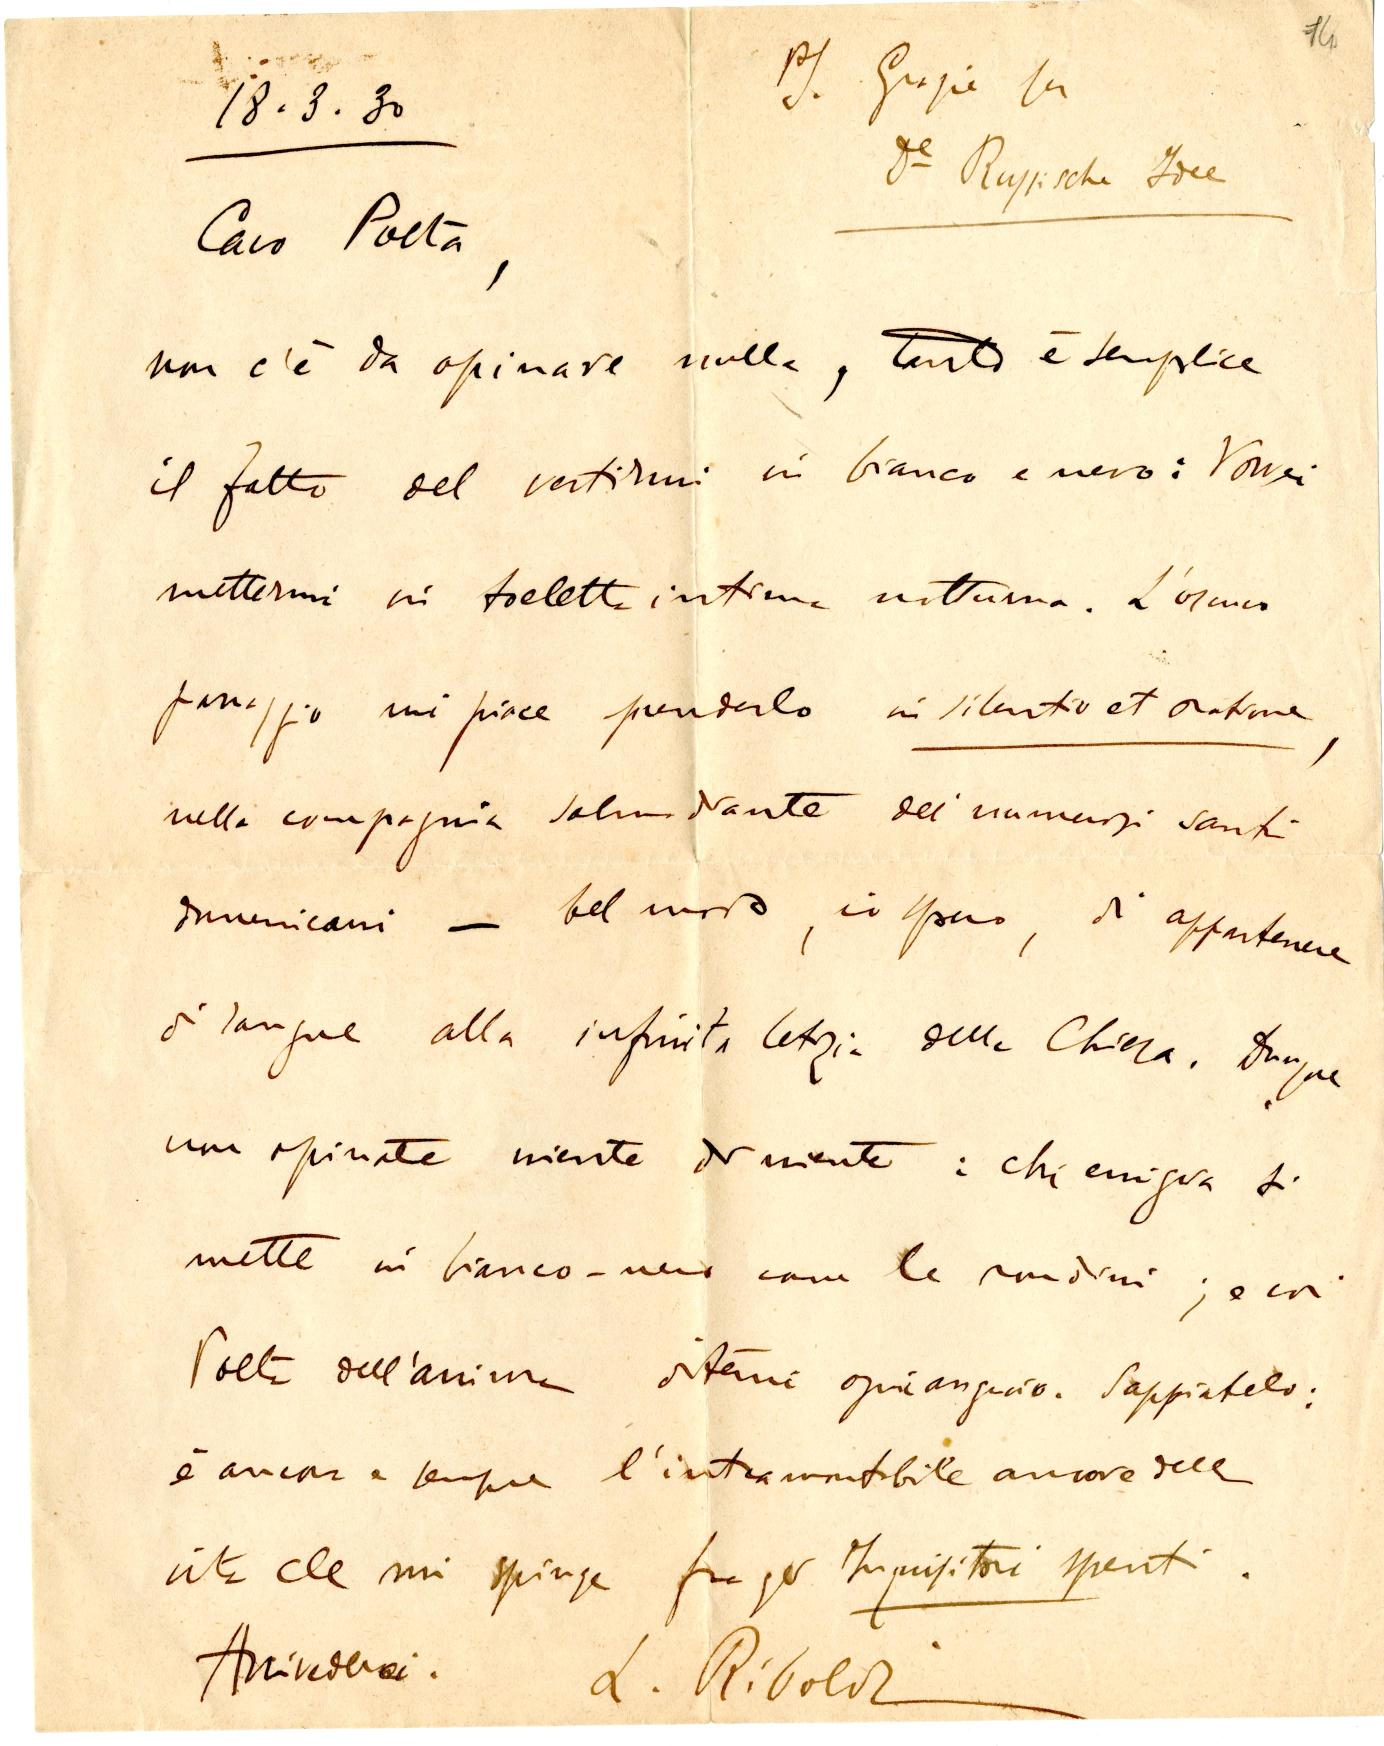 16
18.3.30
PS. Grazie per
De Russische Idee
Caro Poeta,
non c'è da opinare nulla, tanto è semplice
il fatto del vestirmi in bianco e nero: vorrei
mettermi in toeletta intima notturna. L'
passaggio mi piace prenderlo in silentio et oratione,
nella compagnia dei numerosi santi
domenicani — bel modo, io spero, di appartenere
di sangue alla infinita letizia della Chiesa. Dunque
non opinate niente di niente: chi emigra si
mette in bianco-nero come le rondini; e voi
Poeta dell'anima ditemi ogni augurio. Sappiatelo:
è ancora e sempre l'intramontabile amore della
vita che mi spinge fra gli Inquisitori spenti.
Arrivederci. L. Riboldi